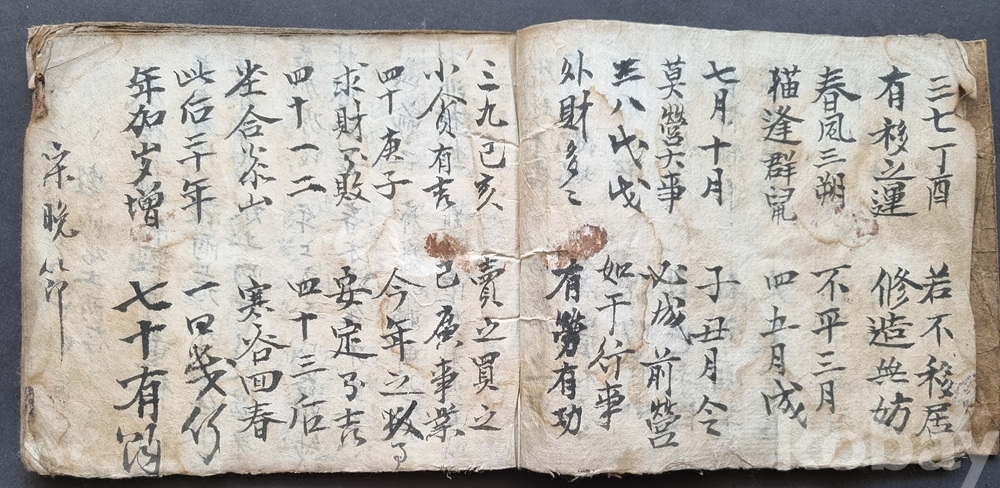 三七丁酉 若不移居
有移之運 修造無妨
春風三朔 不平三月
猫逢群鼠 四五月成
七月十月 子丑月令
莫營大事 必成前營
三八戊戌 如干行事
外財多々 有勞有功
三九己亥 賣之買之
小貨有吉 己庚事業
四十庚子 今年之數
求財不敗 安定分吉
四十一二 四十三后
坐合茶山 寒谷回春
此后三年 一日幾
年加岁增 七十有
宋晚節
kobay